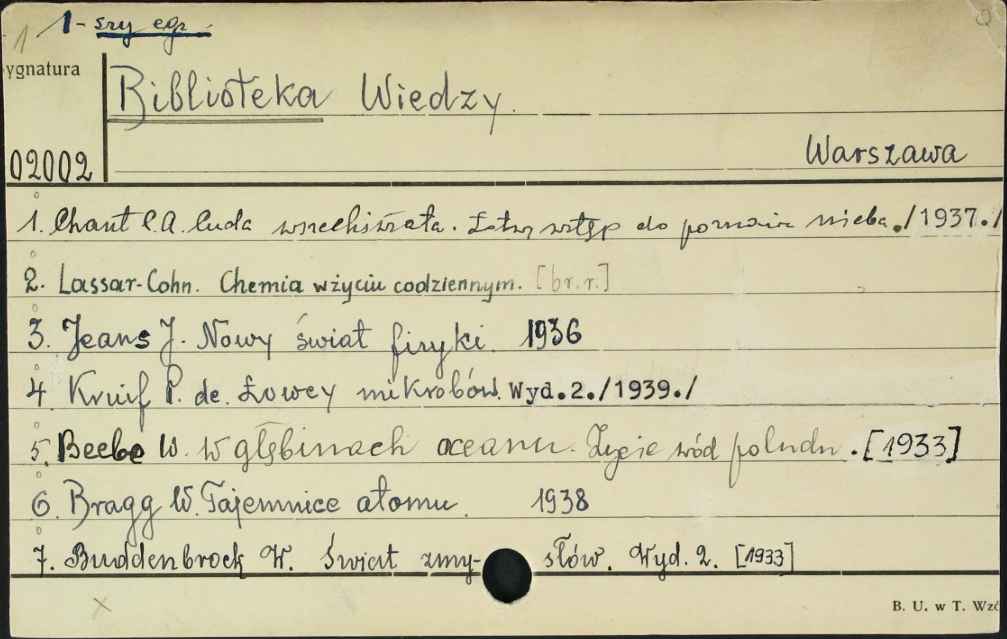 1
1-szy egz.
ygnatura
Biblioteka Wiedzy.
02002
Warszawa
1. Chant C.A. Cuda wszechświata. Łatwy wstęp do poznania nieba./1937./
2. Lassar-Cohn. Chemia w życiu codziennym. [br.r.]
3. Jeans J. Nowy świat fizyki. 1936
4. Kruif P. de. Łowcy mikrobów. Wyd.2./1939./
5. Beebe W. W głębinach oceanu. Życie wśród . [1933]
6. Bragg W. Tajemnice atomu. 1938
7. Buddenbrock W. Świat zmy-słów. Wyd. 2. [1933]
B. U. w T. Wzó